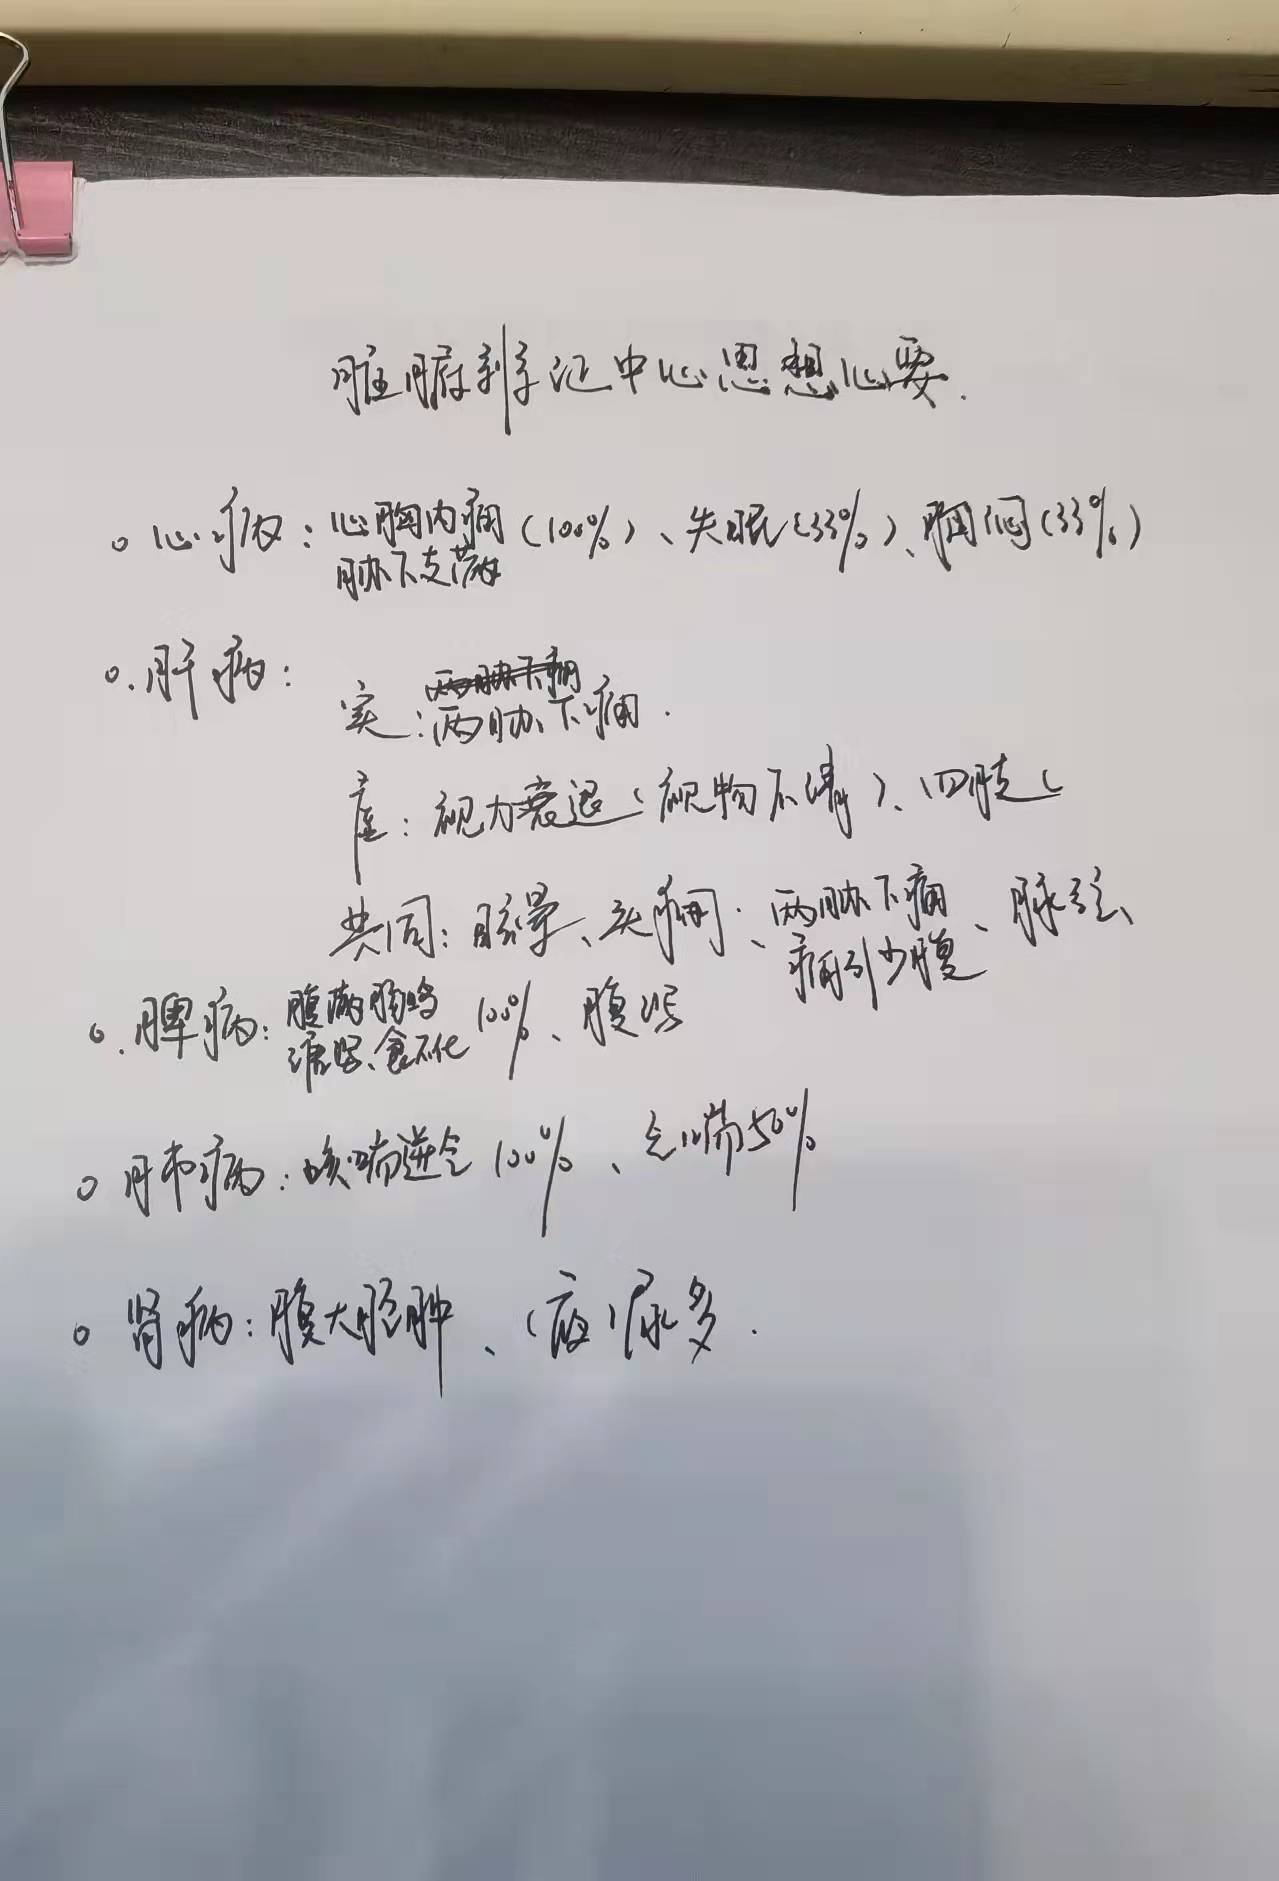 脏腑辨证中心思想心要.
心病：心胸内痛（100%）、失眠（33%）、胸闷（33%）
胁下支满
肝病：
实：两胁下痛.
虚：视力衰退（视物不清）、四肢（
共同：眩晕、头痛、两胁下痛、脉弦、
痛引少腹
脾病：腹满肠鸣 100%、腹泻
溏泄、食不化
肺病：咳喘逆气 100%、气喘50%
肾病：腹大胫肿、（夜）尿多.